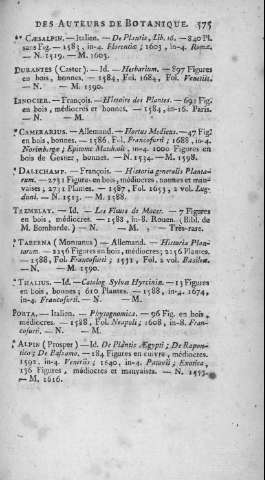 DES AUTEURS DE BOTANIQUE. 575
CÆSALPIN. — Italien. — De Plantis, Lib. 16. — 840 Pl.
sans Fig. — 1583, in-4. Florentiæ; 1603, in-4. Romæ.
— N. 1519. — M. 1603.
DURANTES (Castor). — Id. — Herbarium. — 897 Figures
en bois, bonnes. — 1584, Fol. 1684, Fol. Venetiis.
— N. — M.
LINOCIER. — François. — Histoire des Plantes. — 691 Fig.
en bois, médiocres et bonnes. — 1584, in-16. Paris.
— N. — M.
* CAMERARIUS. — Allemand. — Hortus Medicus. — 47 Fig.
en bois, bonnes. — 1586, Fol. Francofurti; 1688, in-4.
Norimbergæ; Epitome Matthioli, in-4. 1000 Figures en
bois de Gesner, bonnes. — N. 1534. — M. 1598.
* DALECHAMP. — François. — Historia generalis Planta-
rum. — 2731 Figures en bois, médiocres, bonnes et mau-
vaises; 2731 Plantes. — 1587, Fol. 1653, 2 vol. Lug-
duni. — N. 1513. — M. 1588.
TREMBLAY. — Id. — Les Fleurs de Mocer. — 7 Figures
en bois, médiocres. — 1588, in-8. Rouen. (Bibl. de
M. Bombarde.) — N. — M. , — Très-rare.
* TABERNA (Montanus) — Allemand. — Historia Plan-
tarum. — 2256 Figures en bois, médiocres; 2256 Plantes.
— 1588, Fol. Francofurti; 1531, Fol. 2 vol. Basileæ.
— N. — M. 1590.
* THALIUS. — Id. — Catalog. Sylvæ Hyrciniæ. — 13 Figures
en bois, bonnes; 610 Plantes. — 1588, in-4. 1674,
in-4. Francofurti. — N. — M.
PORTA. — Italien. — Phytognomica. — 96 Fig. en bois,
médiocres. — 1588, Fol. Neapoli; 1608, in-8. Fran-
cofurti. — N. — M.
* ALPIN (Prosper) — Id. De Plantis Ægypti; De Rapon-
tico; De Balsamo. — 184 Figures en cuivre, médiocres.
1592, in-4. Venetiis; 1640, in-4. Patavii; Exotica,
136 Figures, médiocres et mauvaises. — N. 1553.
— M. 1616.